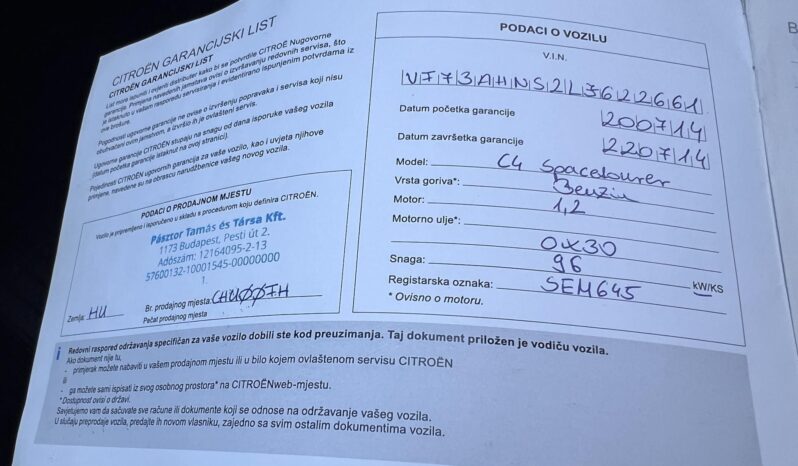 CITROËN GARANCIJSKI LIST
CITROËN GARANCIJSKI LIST
List mora ispuniti i ovjeriti distributer kako bi se potvrdile CITROËN ugovorne
garancije. Primjena navedenih jamstava ovisi o izvršavanju redovnih servisa, što
je istaknuto u vašem rasporedu servisiranja i evidentirano ispunjenim potvrdama iz
ove brošure.
Pogodnosti ugovorne garancije ne ovise o izvršenju popravaka i servisa koji nisu
obuhvaćeni ovim jamstvom, a izvršio ih je ovlašteni servis.
Ugovorne garancije CITROËN stupaju na snagu od dana isporuke vašeg vozila
(datum početka garancije istaknut na ovoj stranici).
Pojedinosti CITROËN ugovornih garancija za vaše vozilo, kao i uvjeta njihove
primjene, navedene su na obrascu narudžbenice vašeg novog vozila.
PODACI O PRODAJNOM MJESTU
Vozilo je pripremljeno i isporučeno u skladu s procedurom koju definira CITROËN.
Pásztor Tamás és Társa Kft.
1173 Budapest, Pesti út 2.
Adószám: 12164095-2-13
57600132-10001545-00000000
1.
Zemlja: HU
Br. prodajnog mjesta: CHU00FH
Pečat prodajnog mjesta
PODACI O VOZILU
V.I.N.
VF73AHNS2LJ622661
Datum početka garancije 200714
Datum završetka garancije 220714
Model: C4 Spacetourer
Vrsta goriva*: Benzin
Motor: 1,2
Motorno ulje*:
0W30
Snaga: 96 kW/KS
Registarska oznaka: SEM645
* Ovisno o motoru.
i Redovni raspored održavanja specifičan za vaše vozilo dobili ste kod preuzimanja. Taj dokument priložen je vodiču vozila.
Ako dokument nije tu,
- primjerak možete nabaviti u vašem prodajnom mjestu ili u bilo kojem ovlaštenom servisu CITROËN
ili
- ga možete sami ispisati iz svog osobnog prostora* na CITROËN web-mjestu.
*Dostupnost ovisi o državi.
Savjetujemo vam da sačuvate sve račune ili dokumente koji se odnose na održavanje vašeg vozila.
U slučaju preprodaje vozila, predajte ih novom vlasniku, zajedno sa svim ostalim dokumentima vozila.